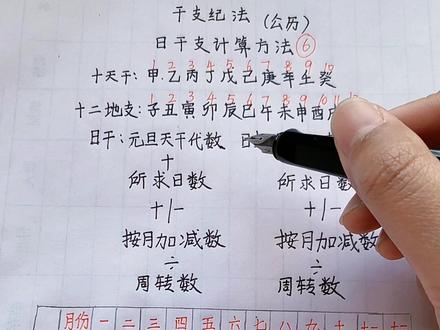 干支纪法 (公历)
日干支计算方法⑥
1 2 3 4 5 6 7 8 9 10
十天干:甲乙丙丁戊己庚辛壬癸
1 2 3 4 5 6 7 8 9 10 11 12
十二地支:子丑寅卯辰巳午未申酉
日干:元旦天干代数 日
+
所求日数 所求日数
+|- +|-
按月加减数 按月加减数
÷ ÷
周转数 周转数
月份 一 二 三 四 五 六 七 八 九 十